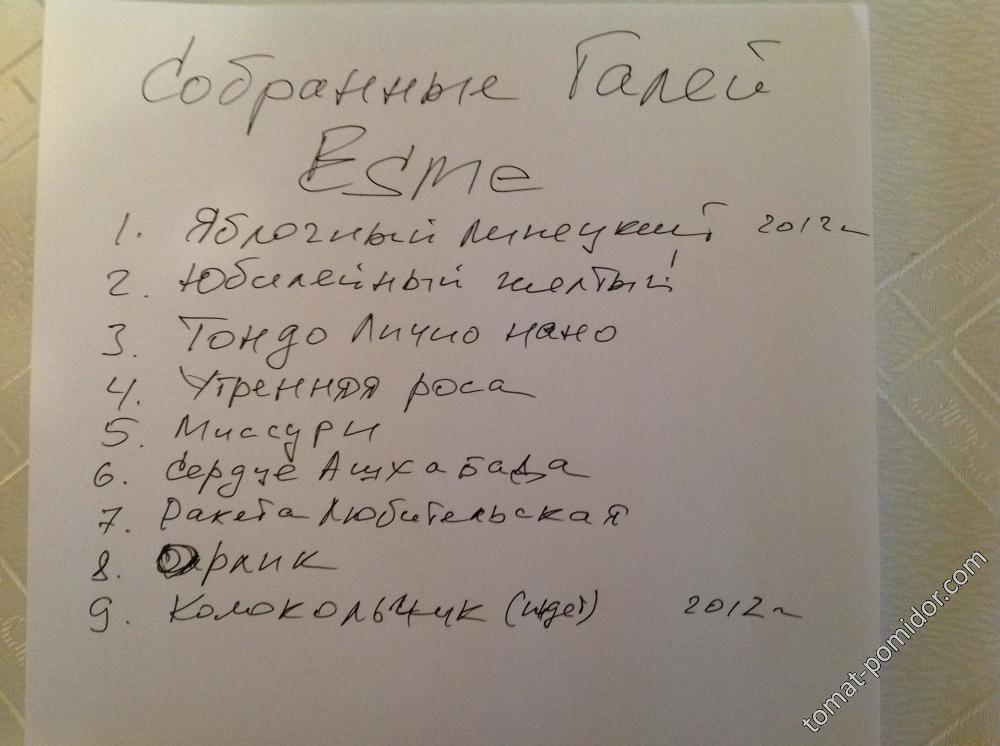 Собранные Галей
Esme
1. Яблочный Липецкий 2012г
2. Юбилейный желтый!
3. Тондо Личио нано
4. Утренняя роса
5. Миссури
6. Сердце Ашхабада
7. Ракета Любительская
8. Орлик
9. Колокольчик (индет) 2012г
tomat-pomidor.com